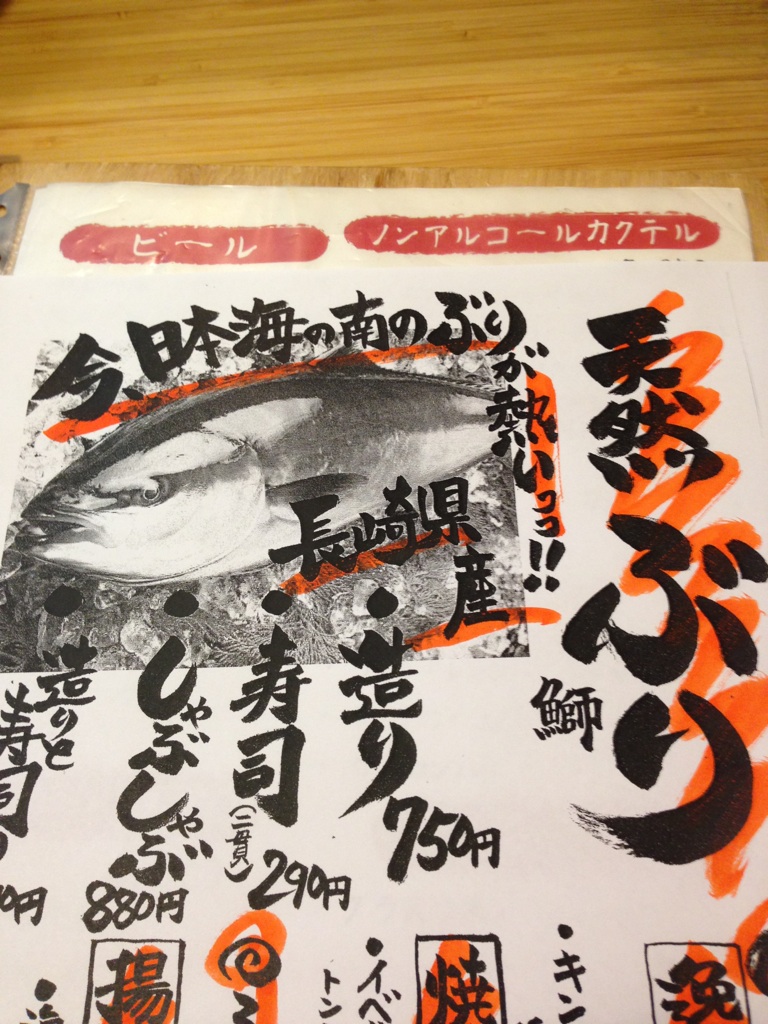 ビール
ノンアルコールカクテル
天然ぶり
鰤
今、日本海の南のぶりが熱いッッ!!
長崎県産
・造り 750円
・寿司(二貫) 290円
・しゃぶしゃぶ 880円
・造りと
寿司
0円
・キン
焼
・イベ
トン
揚